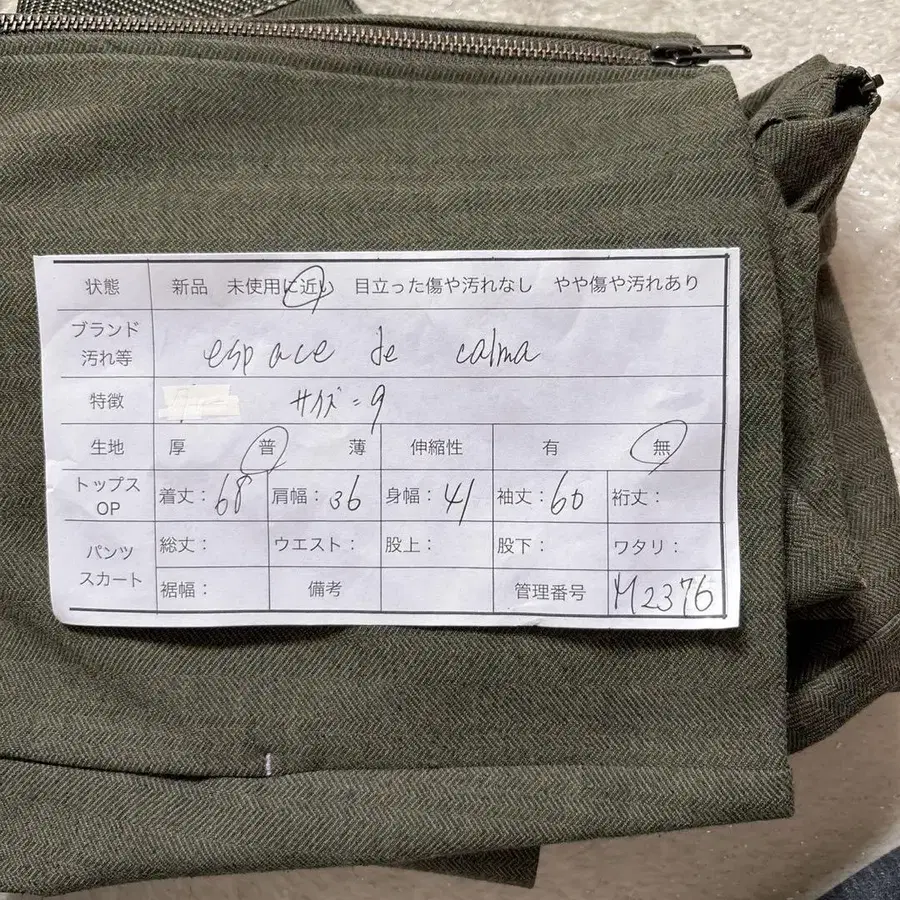 状態 新品 未使用に近い 目立った傷や汚れなし やや傷や汚れあり
ブランド
汚れ等 espace de calma
特徴 サイズ=9
生地 厚 普 薄 伸縮性 有 無
トップス
OP 着丈:68 肩幅:36 身幅:41 袖丈:60 裄丈:
パンツ
スカート 総丈: ウエスト: 股上: 股下: ワタリ:
裾幅: 備考 管理番号 M2376